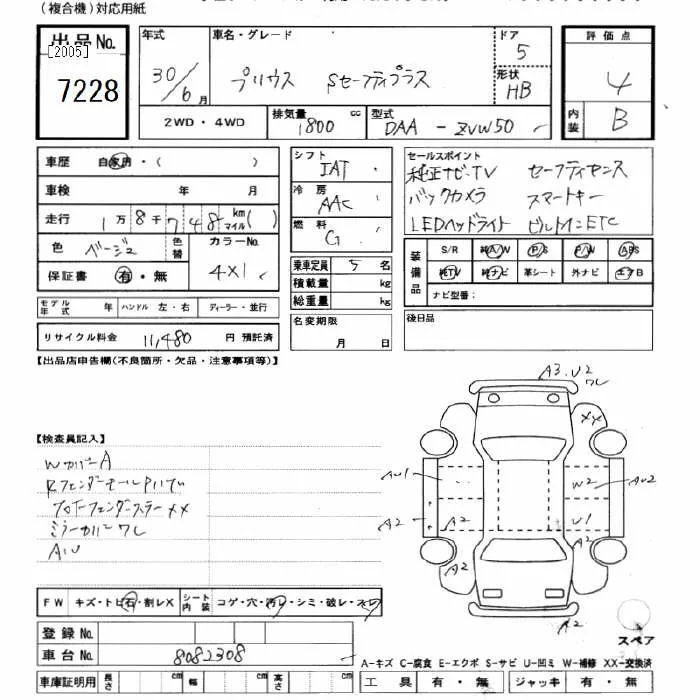 (複合機)対応用紙
出品No.
[2005]
7228
年式
30/6月
車名・グレード
プリウス Sセーフティプラス
ドア
5
形状
HB
評価点
4
内装
B
2WD・4WD
排気量
1800 cc
型式
DAA-ZVW50
車歴 自家用・( )
車検 年 月
走行 1万8千748 km マイル( )
色 ベージュ
色替
カラーNo.
4X1
保証書 有・無
シフト
IAT
冷房
AAC
燃料
G
乗車定員 5名
積載量 kg
総重量 kg
名変期限
月 日
セールスポイント
純正ナビ・TV セーフティセンス
バックカメラ スマートキー
LEDヘッドライト ビルトインETC
装備品
S/R 純A/W P/S P/W ABS
純TV 純ナビ 革シート 外ナビ エアB
ナビ型番:
後日品
モデル年式 年 ハンドル 左・右 ディーラー・並行
リサイクル料金 11,480 円 預託済
【出品店申告欄(不良箇所・欠品・注意事項等)】
【検査員記入】
WカバーA
ミラーカバーワレ
AU
A3.U2
ワレ
XX
AU1
W2
AU2
A2
A2
U1
A2
A2
A2
スペア
FW キズ・トビ石・割レX
シート内装 コゲ・穴・汚レ・シミ・破レ・スレ
登録No.
車台No. 8082308
車庫証明用 長さ cm 幅 cm 高さ cm
A-キズ C-腐食 E-エクボ S-サビ U-凹ミ W-補修 XX-交換済
工具 有・無 ジャッキ 有・無